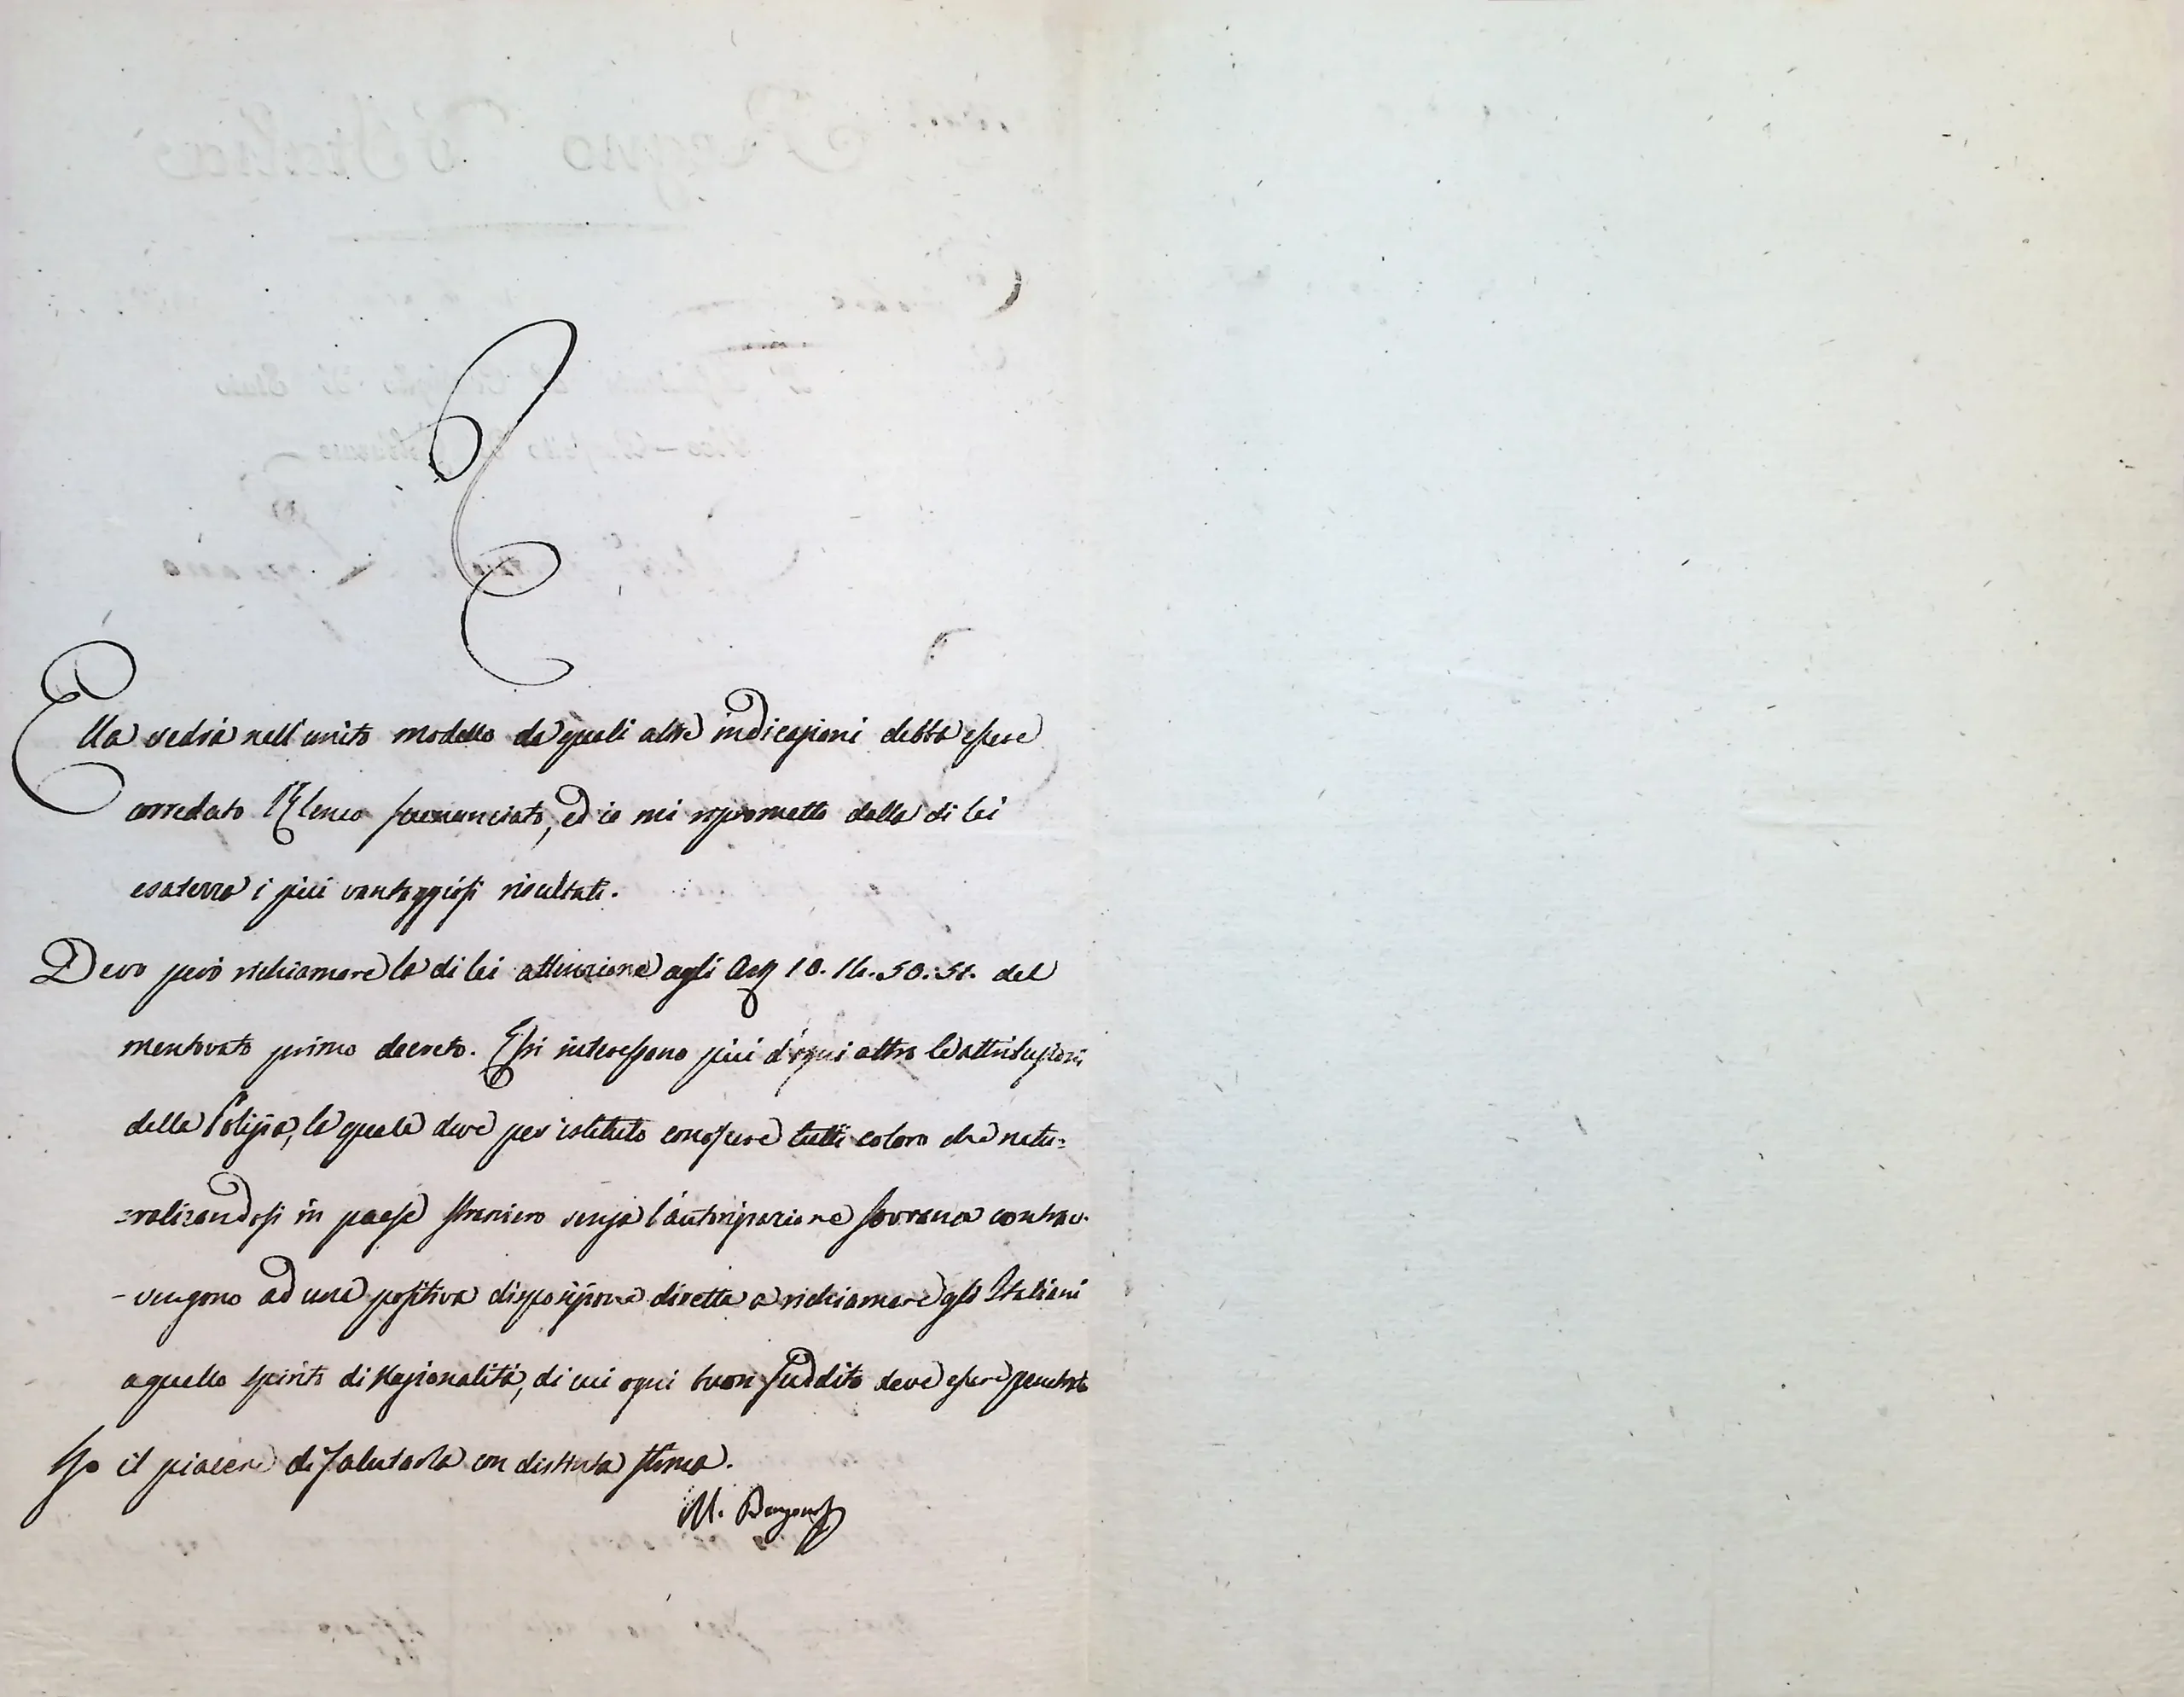 Ella vedrà nell'unito modello da quali altre indicazioni debba essere
corredato l'Elenco summenciato, ed io mi riprometto dalla di lei
esatezza i più vantaggiosi risultati.
Devo però richiamare la di lei attenzione agli Art 10. 14. 50. 51. del
mentovato primo decreto. Essi interessano più d'ogni altro le attribuzioni
della Polizia, la quale deve per istituto conoscere tutti coloro che natu=
=ralizandosi in paese straniero senza l'autorizzazione sovrana contrav-
-vengono ad una positiva disposizione diretta a richiamare gli Italiani
a quello spirito di Nazionalità, di cui ogni buon suddito deve essere penetrato
Ho il piacere di salutarla con distinta stima.
M.